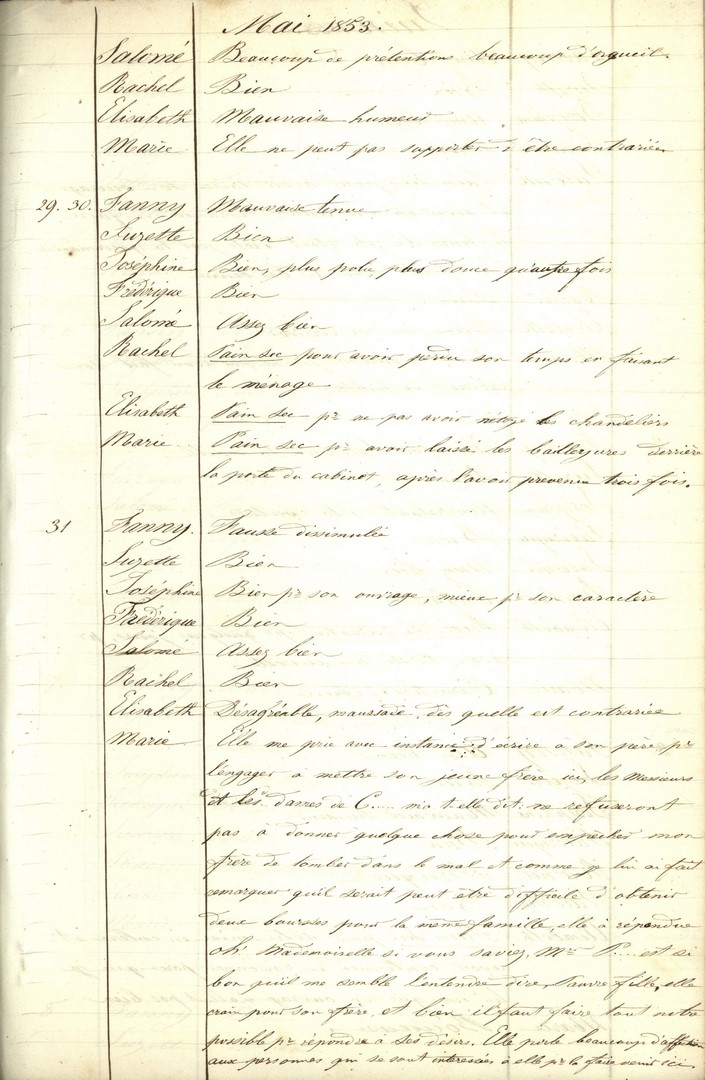 Mai 1853.
Salomé Beaucoup de prétentions beaucoup d'orgueil.
Rachel Bien
Elisabeth Mauvaise humeur
Marie Elle ne peut pas supporter d'être contrariée
29. 30. Fanny Mauvaise tenue
Suzette Bien
Joséphine Bien, plus polie, plus douce qu'autre fois
Frédérique Bien
Salomé Assez bien
Rachel Pain sec pour avoir perdu son temps en faisant
le ménage
Elisabeth Pain sec pr ne pas avoir nétoyé les chandeliers
Marie Pain sec pr avoir laissé les ballieyures derrière
la porte du cabinet, après l'avoir prevenue trois fois.
31 Fanny. Fausse dissimulée
Suzette Bien
Joséphine Bien pr son ouvrage, mieux pr son caractère
Frédérique Bien
Salomé Assez bien
Rachel Bien
Elisabeth Désagréable, maussade, dès quelle est contrariée
Marie Elle me prie avec instance d'écrire à son père pr
l'engager a mettre son jeune frère ici, les Messieurs
et les dames de C..... m'a t-elle dit: ne refuseront
pas à donner quelque chose pour empêcher mon
frère de tomber dans le mal et comme je lui ai fait
remarquer qu'il serait peut être difficile d'obtenir
deux bourses pour la même famille, elle à répondue
oh! Mademoiselle si vous saviez, Mr P.... est si
bon qu'il me semble l'entendre dire, Pauvre fille, elle
crain pour son frère, et bien il faut faire tout notre
possible pr répondre à ses désirs. Elle porte beaucoup d'affection
aux personnes qui se sont interessées à elle pr la faire venir ici.